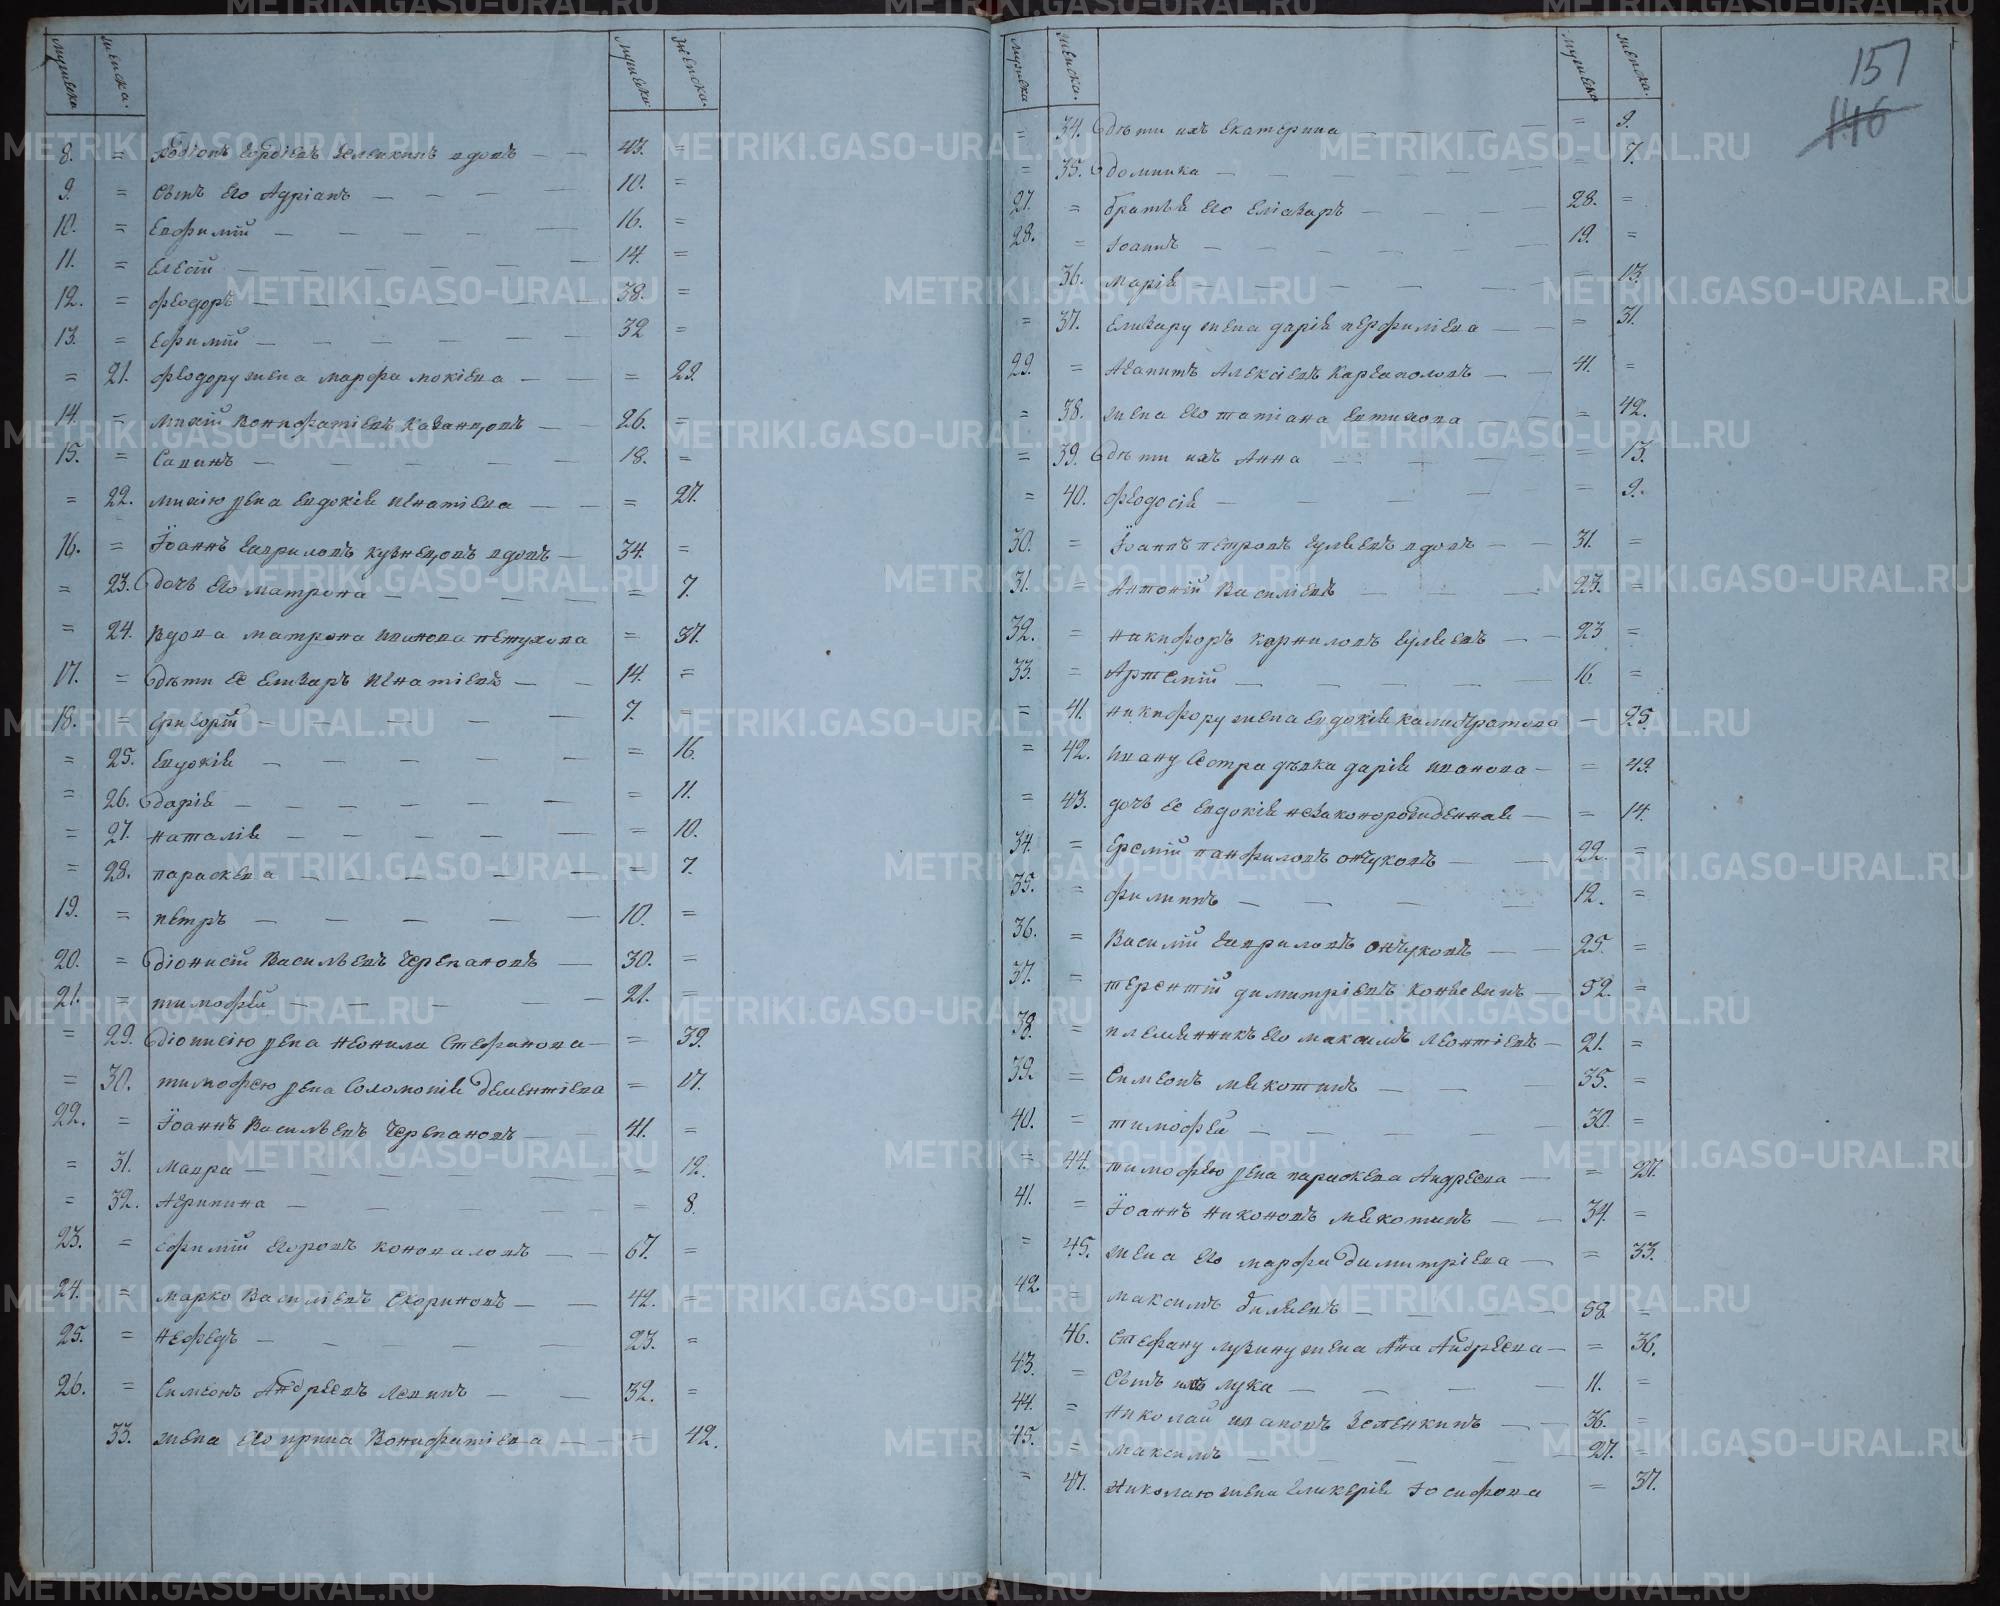 мужеска женска. мужеска женска.
8. = Родіонъ Гордѣевъ Зеленкинъ вдовъ — — 43. =
9. = Сынъ его Адріанъ — — — 10. =
10. = Евфимій — — — — — 16. =
11. = Елесій — — — — — — 14. =
12. = Феодоръ — — — — — — 38. =
13. = Ефимій — — — — — — 32 =
= 21. Феодору жена Марфа Мокіева — — = 29.
14. = Михій Вонифатіевъ Казанцовъ — — 26. =
15. = Савинъ — — — — — 18. =
= 22. Михію жена Евдокія Игнатіева — — = 27.
16. = Іоаннъ Гавриловъ Кузнецовъ вдовъ — 34. =
= 23. дочь его Матрона — — — — = 7.
= 24. Вдова Матрона Иванова Петухова = 37.
17. = дѣти ее Елизаръ Игнатіевъ — — 14. =
18. = Григорій — — — — — 7. =
= 25. Евдокія — — — — — = 16.
= 26. Дарія — — — — — — = 11.
= 27. Наталія — — — — — = 10.
= 28. Параскева — — — — — = 7.
19. = Петръ — — — — — 10. =
20. = Діонисій Васильевъ Черепановъ — 30. =
21. = Тимофей — — — — — 21. =
= 29. Діонисію жена Неонила Стефанова — = 39.
= 30. Тимофею жена Соломонія Дементіева = 17.
22. = Іоаннъ Васильевъ Черепановъ — — 41. =
= 31. Мавра — — — — — — = 12.
= 32. Агрипина — — — — — = 8.
23. = Ефимій Егоровъ Коноваловъ — — 67. =
24. = Марко Василіевъ Скориновъ — — 42. =
25. = Нефедъ — — — — — 23. =
26. = Симеонъ Андреевъ Левинъ — — 32. =
33. жена его Ирина Вонифатіева — — = 42.
157
146
мужеска женска. мужеска женска.
= 34. дѣти ихъ Екатерина — — — — = 9.
= 35. Домника — — — — — = 7.
27. = братья его Еліазаръ — — — — 28. =
28. = Іоаннъ — — — — — 19. =
36. Марія — — — — — = 13.
= 37. Елизару жена Дарія Перфиліева — — = 31.
29. = Агапитъ Алексіевъ Карваполовъ — — 41. =
= 38. жена его Татіана Евтихова — — = 42.
= 39. дѣти ихъ Анна — — — — = 13.
= 40. Феодосія — — — — — = 9.
30. = Іоаннъ Петровъ Гуляевъ вдовъ — — 31. =
31. = Антоній Василіевъ — — — 23. =
32. = Никифоръ Карниловъ Гуляевъ — — 23 =
33. = Артемій — — — — — 16. =
= 41. Никифору жена Евдокія Калистратова — 25.
= 42. Ивану Сотра дѣвка Дарія Иванова — = 49.
= 43. дочь ее Евдокія незаконорожденная — = 14.
34. = Еремій Панфиловъ Ончуковъ — — 22. =
35. = Филиппъ — — — — 12. =
36. = Василій Гавриловъ Ончуковъ — — 25. =
37. = Терентій Димитріевъ Коньвгинъ — 52. =
38. = племянникъ его Максимъ Леонтіевъ — 21. =
39. = Симеонъ Мякотинъ — — — 35. =
40. = Тимофей — — — — — 30. =
= 44. Тимофею жена Параскева Андреева — = 27.
41. = Іоаннъ Никоновъ Мякотинъ — — 34. =
= 45. жена его Марфа Димитріева — = 33.
42 = Максимъ Биляевъ — — — — 58. =
46. Стефану Лузину жена Анна Андреева — = 36.
43. = Сынъ ихъ Лука — — — — 11. =
44. = Николай Ивановъ Зеленкинъ — — 36. =
45. = Максимъ — — — — — 27. =
= 47. Николаю жена Гликерія Іосифова = 37.